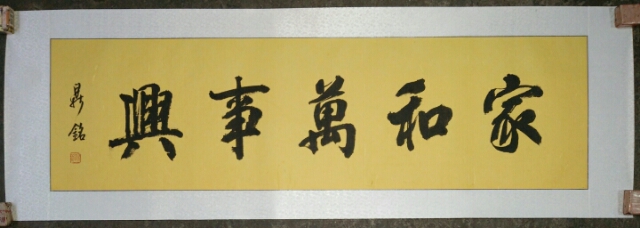 家和萬事興
鼎銘